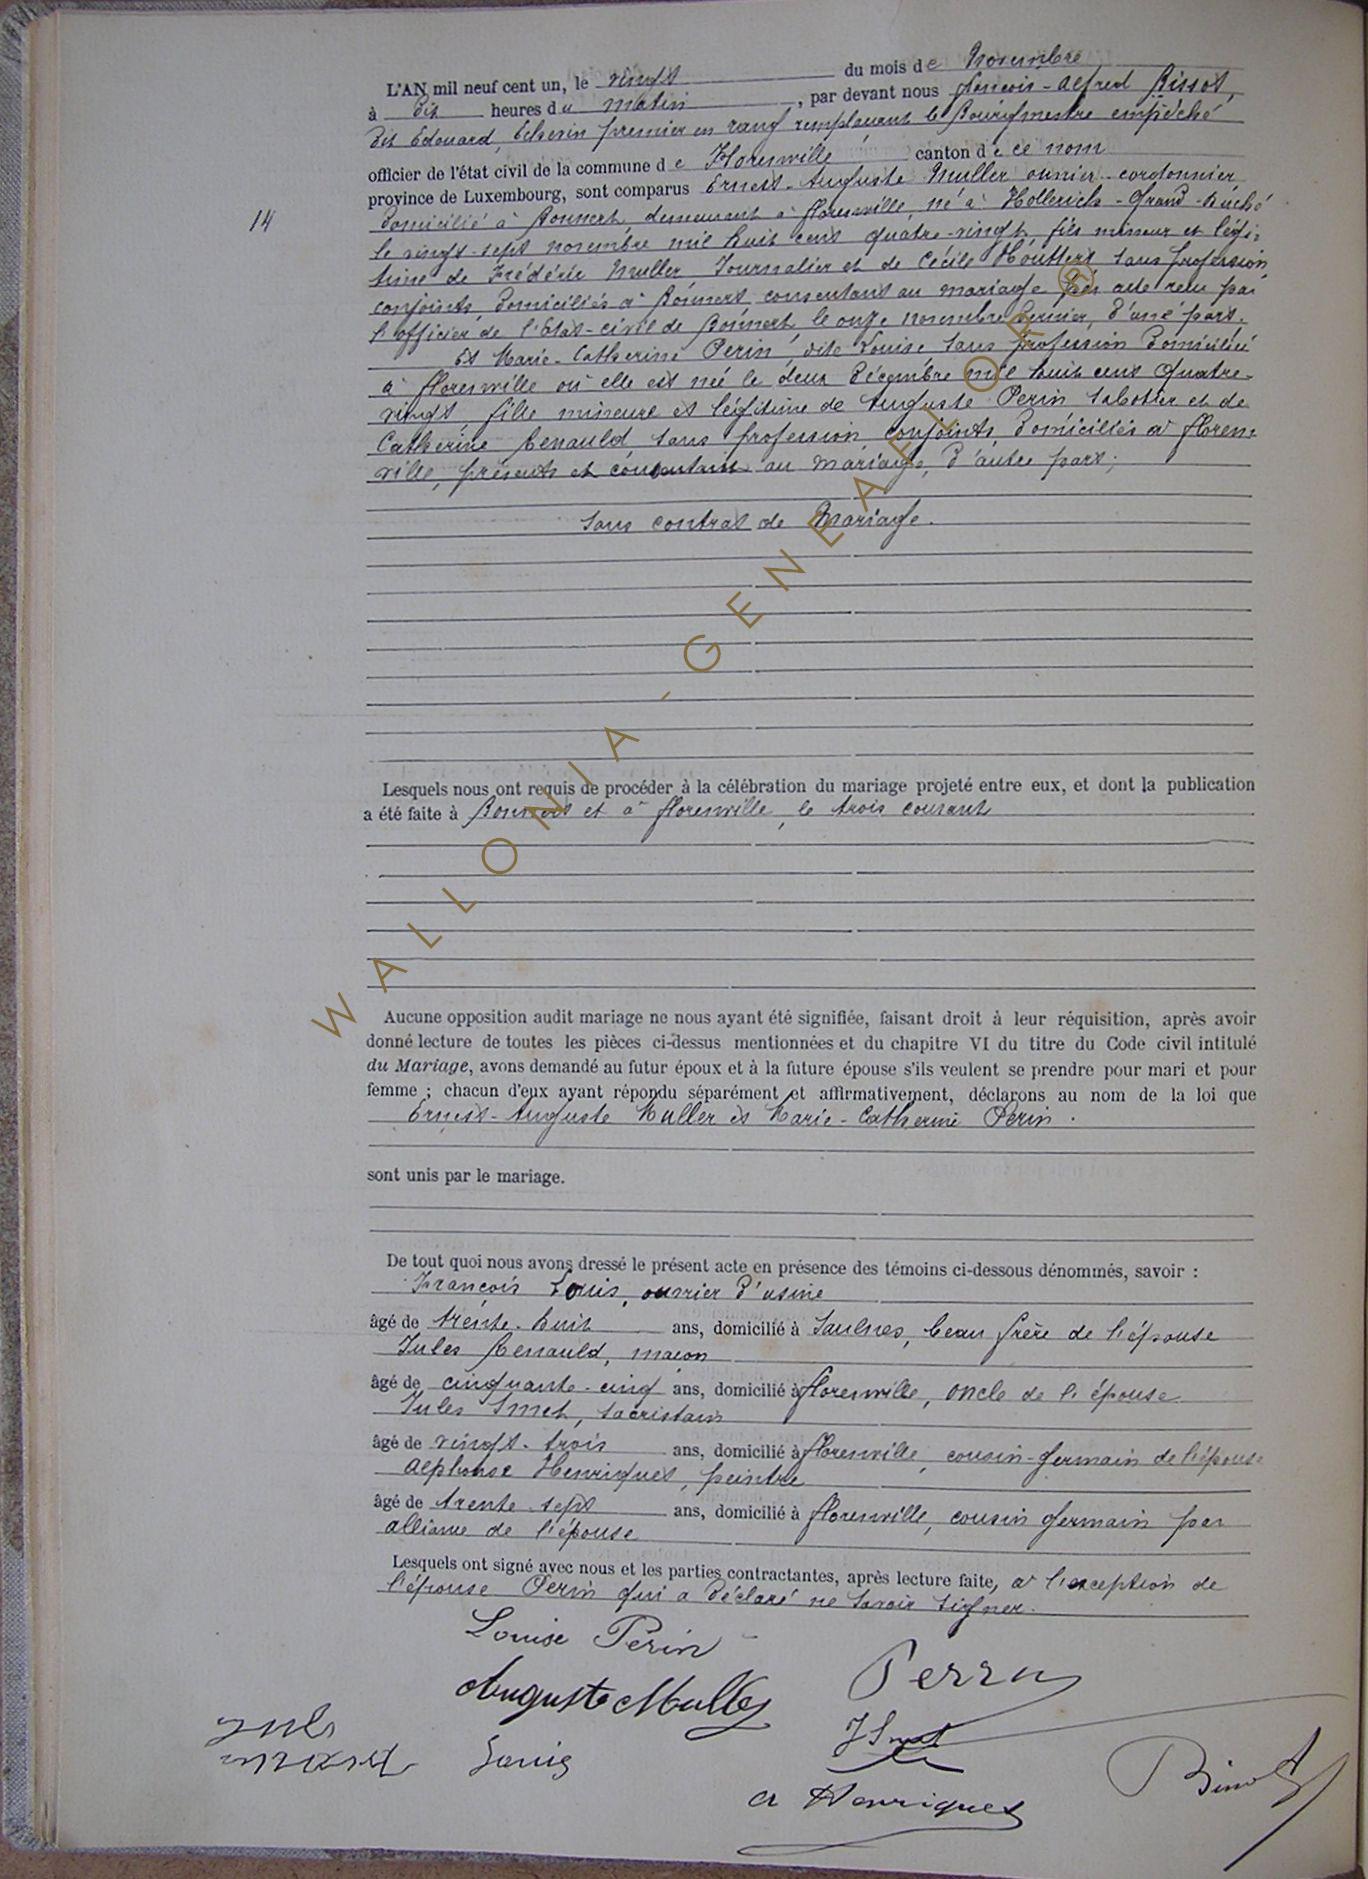 L'AN mil neuf cent un, le vingt du mois de Novembre
à dix heures du matin, par devant nous françois-Alfred
dit Edouard, Echevin premier en rang remplaçant le Bourgmestre empêché
officier de l'état civil de la commune de Florenville canton de ce nom
province de Luxembourg, sont comparus Ernest-Auguste Muller ouvrier-cordonnier
14
domicilié à Bonnert, demeurant à florenville, né à Hollerich-Grand-Duché
le vingt-sept novembre mil huit cent quatre-vingt, fils mineur et légi-
time de Frédéric Muller Journalier et de Cécile sans profession
conjoints, domiciliés à Bonnert, consentant au mariage par acte reçu par
l'officier de l'Etat-civil de Bonnert, le onze novembre dernier, d'une part.
Et Marie-Catherine Perin, dite Louise sans profession domiciliée
à florenville où elle est née le deux décembre mil huit cent quatre-
vingt, fille mineure et légitime de Auguste Perin sabotier et de
Catherine Renauld, sans profession conjoints, domiciliés à floren-
ville, présents et consentant au mariage, d'autre part;
Sans contrat de Mariage.
WALLONIA-GENEAFLOR ®
Lesquels nous ont requis de procéder à la célébration du mariage projeté entre eux, et dont la publication
a été faite à Bonnert et à florenville, le trois courant
Aucune opposition audit mariage ne nous ayant été signifiée, faisant droit à leur réquisition, après avoir
donné lecture de toutes les pièces ci-dessus mentionnées et du chapitre VI du titre du Code civil intitulé
du Mariage, avons demandé au futur époux et à la future épouse s'ils veulent se prendre pour mari et pour
femme ; chacun d'eux ayant répondu séparément et affirmativement, déclarons au nom de la loi que
Ernest-Auguste Muller et Marie-Catherine Perin.
sont unis par le mariage.
De tout quoi nous avons dressé le présent acte en présence des témoins ci-dessous dénommés, savoir :
François Louis, ouvrier d'usine
âgé de trente-huit ans, domicilié à Saulnes, beau frère de l'épouse
Jules Renauld, maçon
âgé de cinquante-cinq ans, domicilié à florenville, oncle de l'épouse
Jules Smet, sacristain
âgé de vingt-trois ans, domicilié à florenville, cousin-germain de l'épouse
Alphonse Henriquet, peintre
âgé de trente-sept ans, domicilié à florenville, cousin germain par
alliance de l'épouse
Lesquels ont signé avec nous et les parties contractantes, après lecture faite, à l'exception de
l'épouse Perin qui a déclaré ne savoir signer.
Louise Perin
Auguste Muller
J Smet
Louis
A Henriquet